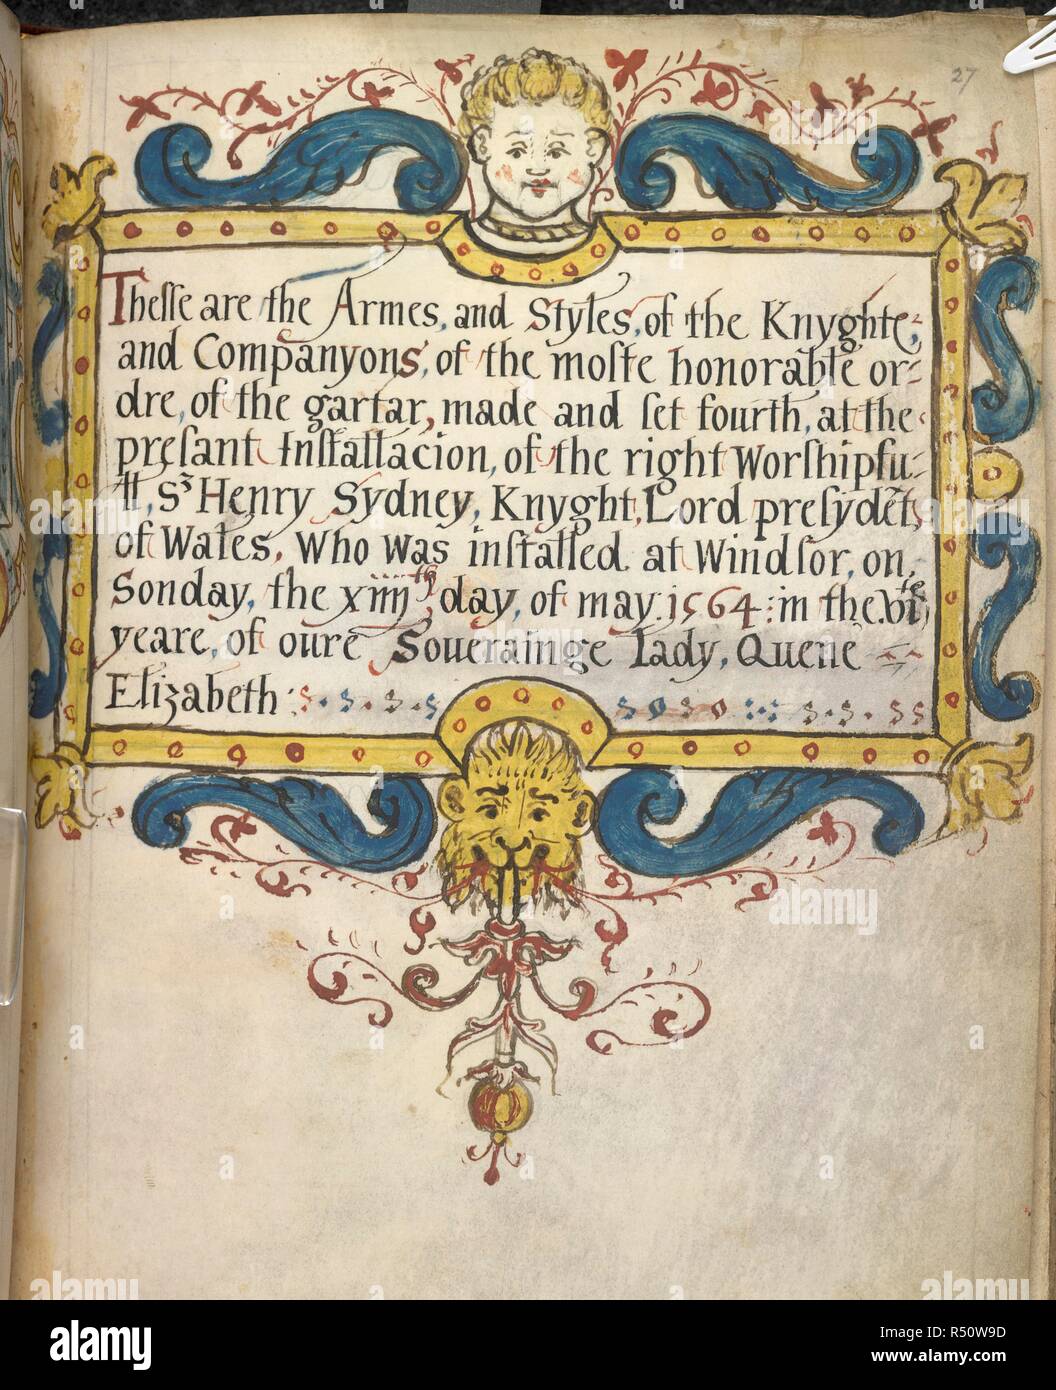 27
Thesse are the Armes, and Styles, of the Knyghte,
and Companyons, of the moste honorable or-
dre, of the gartar, made and set fourth, at the
presant Installacion, of the right Worshipfu-
ll, Sr Henry Sydney, Knyght, Lord presydet,
of Wales. Who was installed at Windsor, on
Sonday, the xiiijth day, of may 1564: in the vith
yeare, of oure Soueraінge lady, Quene
Elizabeth
alamy
alamy stock photo
R50W9D
www.alamy.com